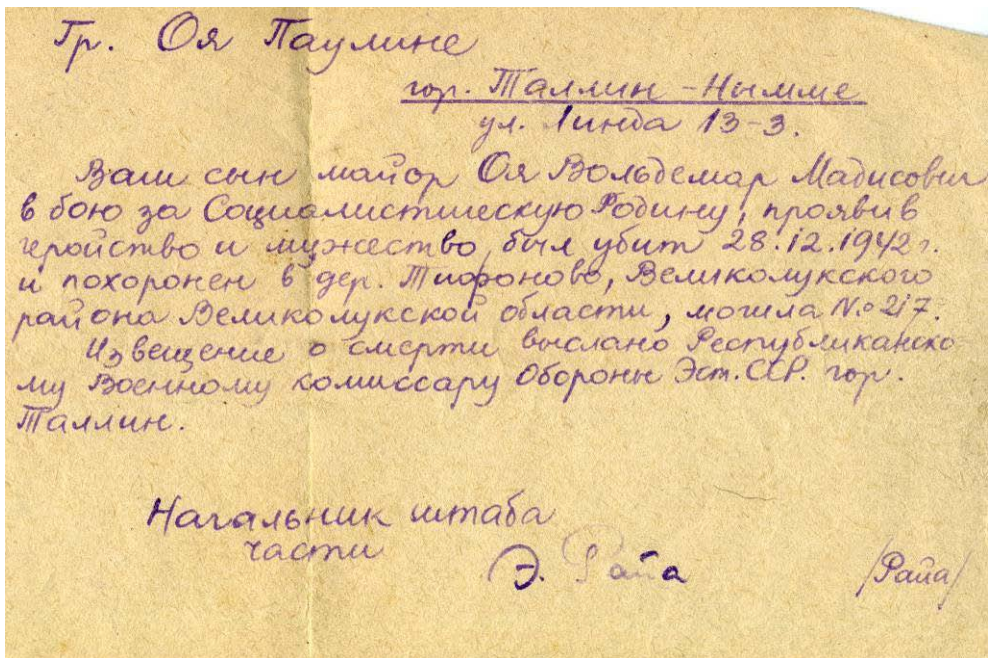 Гр. Оя Паулине
гор. Таллин-Нымме
ул. Линда 13-3.
Ваш сын майор Оя Вольдемар Мадисович
в бою за Социалистическую Родину, проявив
геройство и мужество, был убит 28.12.1942 г.
и похоронен в дер. Тифоново, Великолукского
района Великолукской области, могила №217.
Извещение о смерти выслано Республиканско-
му Военному комиссару Обороны Эст. ССР. гор.
Таллин.
Начальник штаба
части
Э. Райа
/Райа/